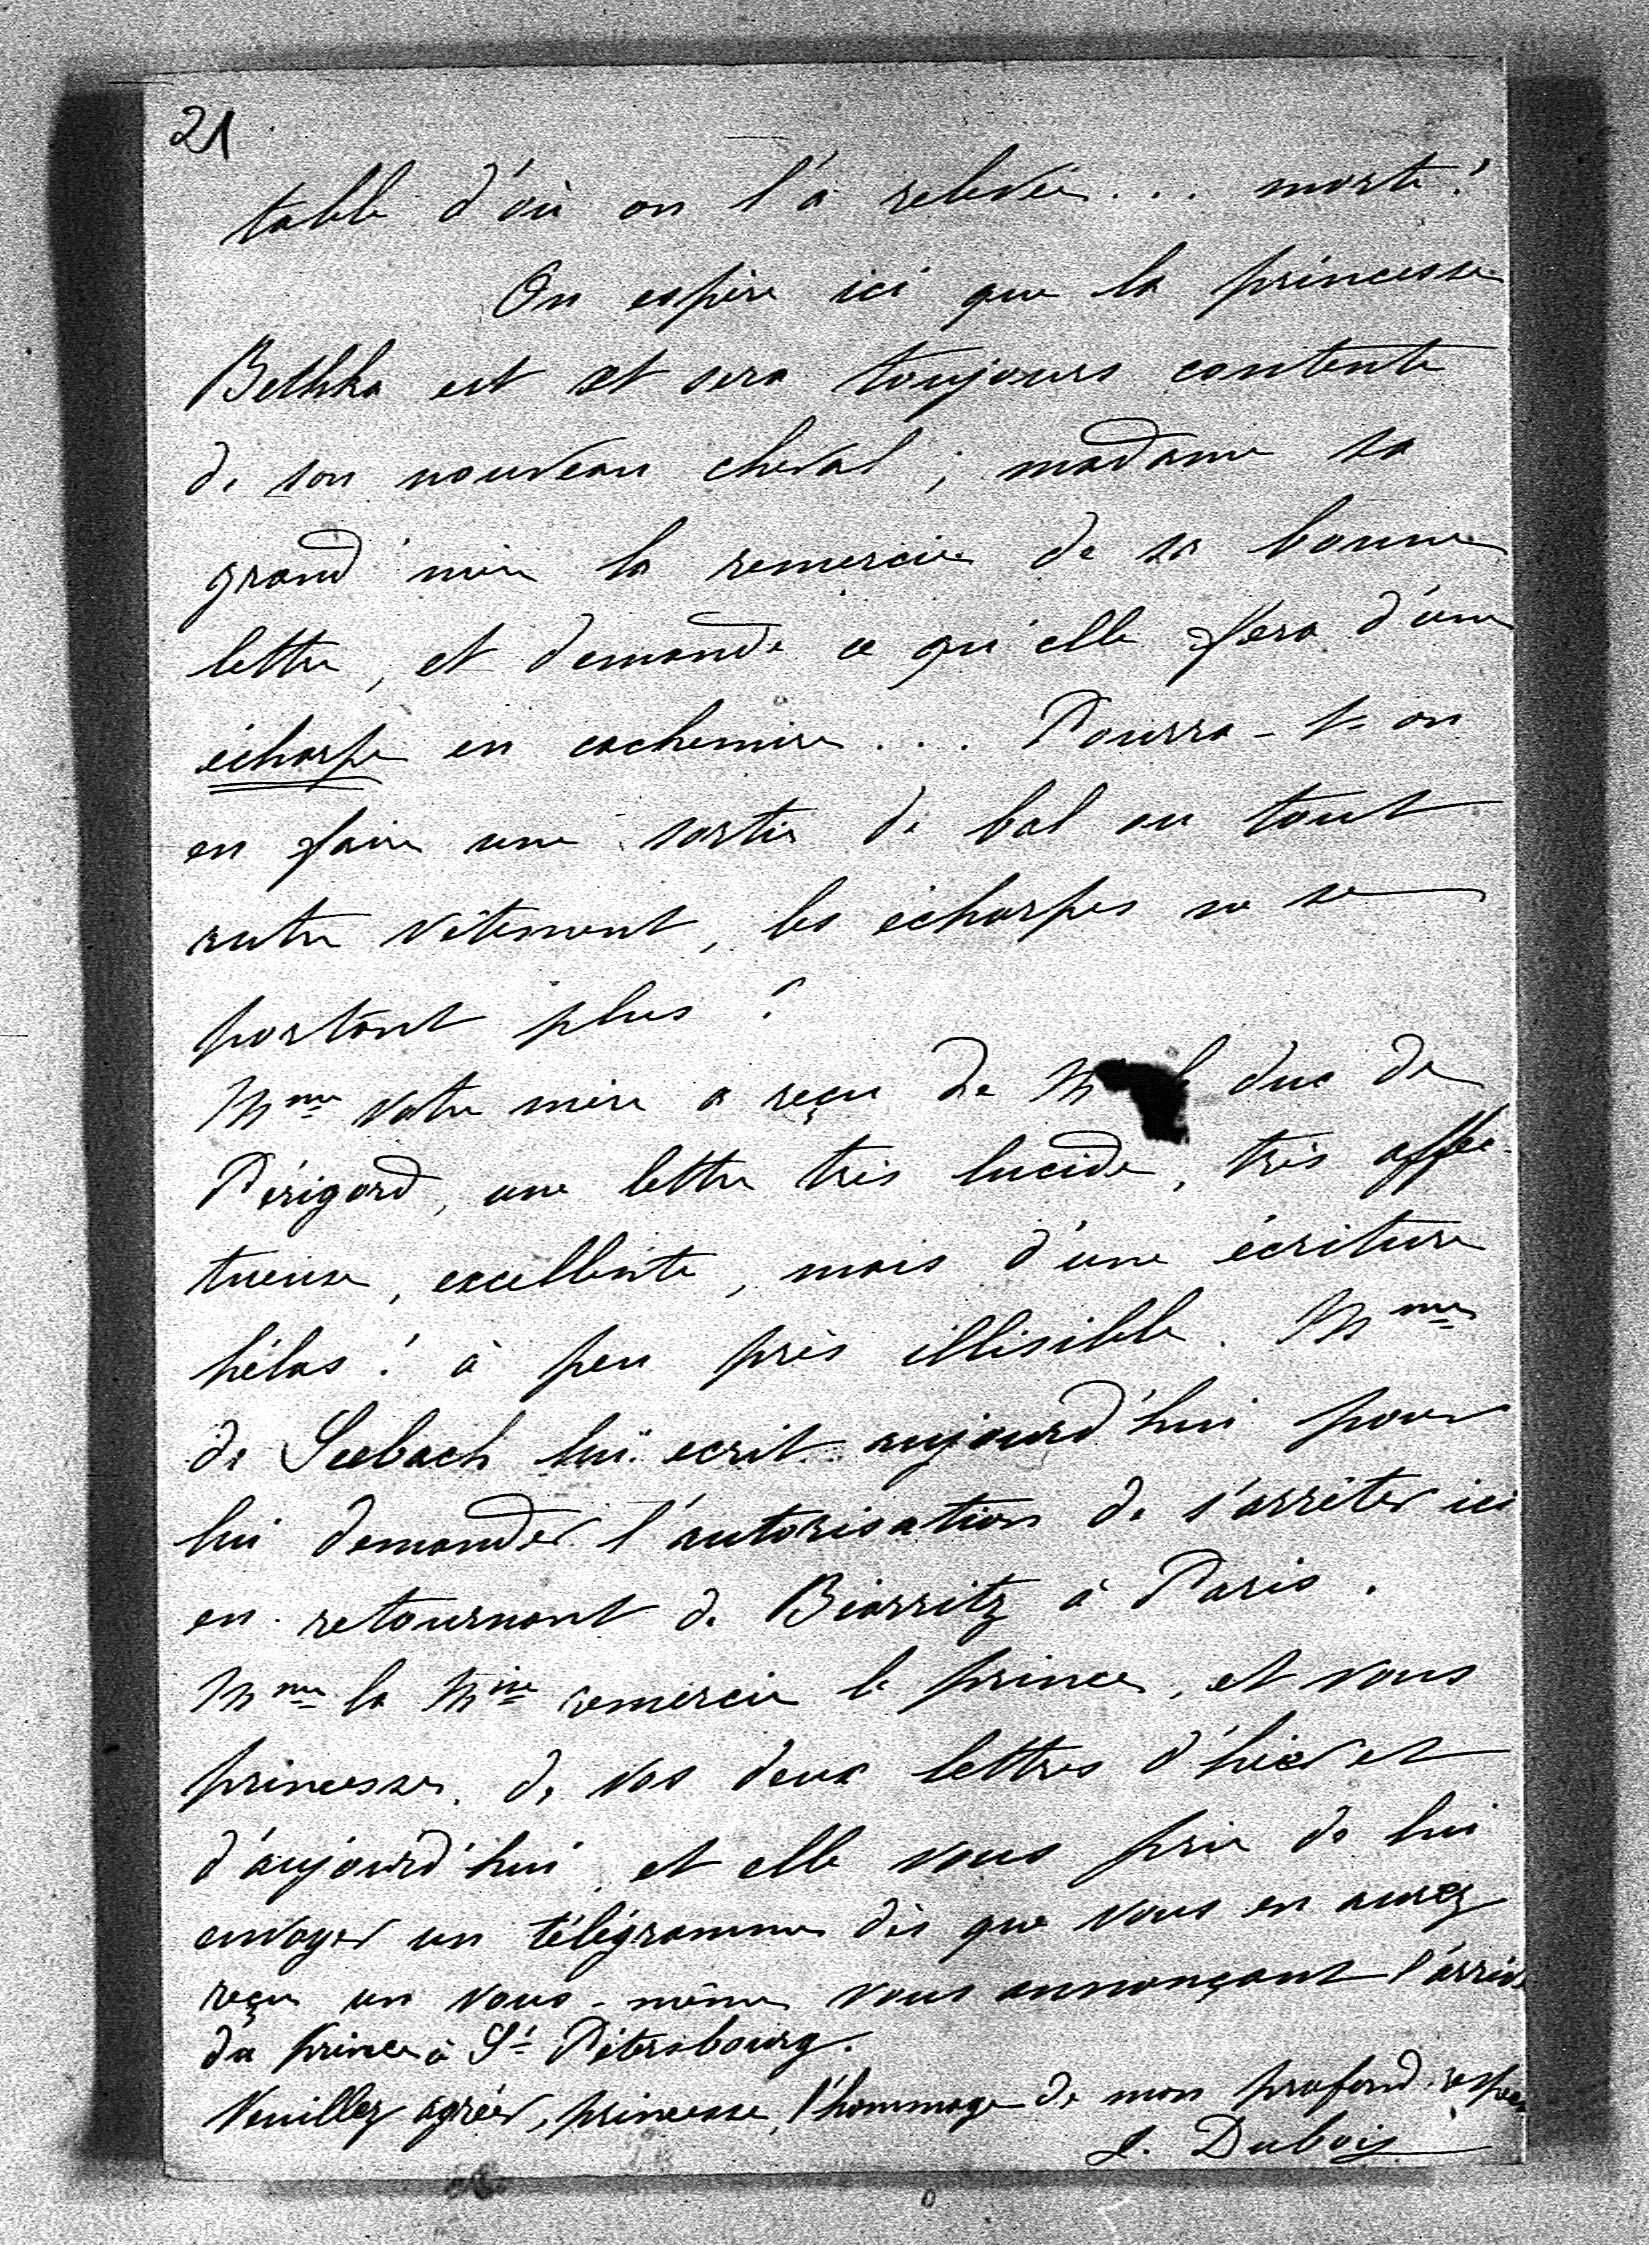 21
table d'où on l'a relevée... morte!
On espère ici que la princesse
Bethka est et sera toujours contente
de son nouveau cheval; madame sa
grand'mère la remercie de sa bonne
lettre, et demande ce qu'elle fera d'une
écharpe en cachemire... Pourra-t-on
en faire une sortie de bal ou tout
autre vêtement, les écharpes ne se
portant plus?
Mme votre mère a reçu de M le duc de
Périgord, une lettre très lucide, très affec-
tueuse, excellente, mais d'une écriture
hélas! à peu près illisible. Mme
de Seebach lui écrit aujourd'hui pour
lui demander l'autorisation de s'arrêter ici
en retournant de Biarritz à Paris.
Mme la Mise remercie le prince, et vous
princesse, de vos deux lettres d'hier et
d'aujourd'hui, et elle vous prie de lui
envoyer un télégramme dès que vous en aurez
reçu un vous-même vous annonçant l'arrivée
du prince à St Pétersbourg.
Veuillez agréer, princesse, l'hommage de mon profond respect
L. Dubois